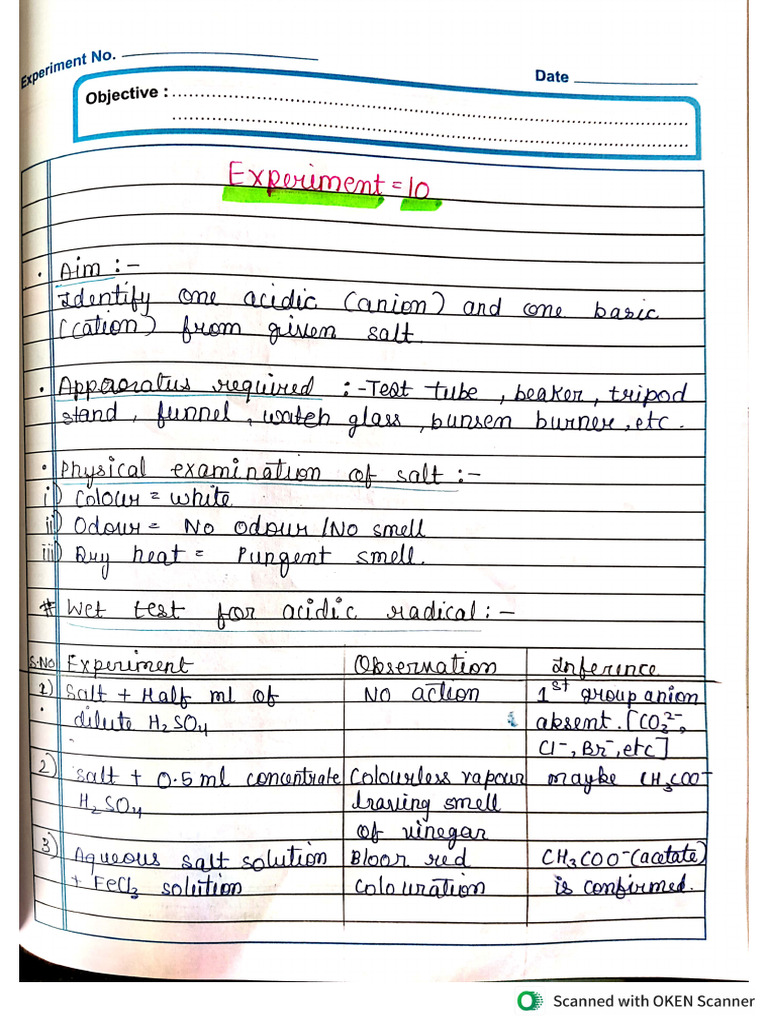 Experiment No.
Date
Objective :
Experiment = 10
• Aim :-
Identify one acidic (anion) and one basic
(cation) from given salt.
• Apparatus required :- Test tube, beaker, tripod
stand, funnel, watch glass, bunsen burner, etc.
• Physical examination of salt :-
i) Colour = white
ii) Odour = No odour / No smell
iii) Dry heat = Pungent smell.
# Wet test for acidic radical :-
S.No Experiment Observation Inference
1) Salt + Half ml of No action 1st group anion
dilute H₂SO₄ absent. [CO₃²⁻,
Cl⁻, Br⁻, etc]
2) Salt + 0.5 ml concentrate Colourless vapour maybe CH₃COO⁻
H₂SO₄ having smell
of vinegar
3) Aqueous salt solution Bloor red CH₃COO⁻ (acetate)
+ FeCl₃ solution Colouration is confirmed.
Scanned with OKEN Scanner